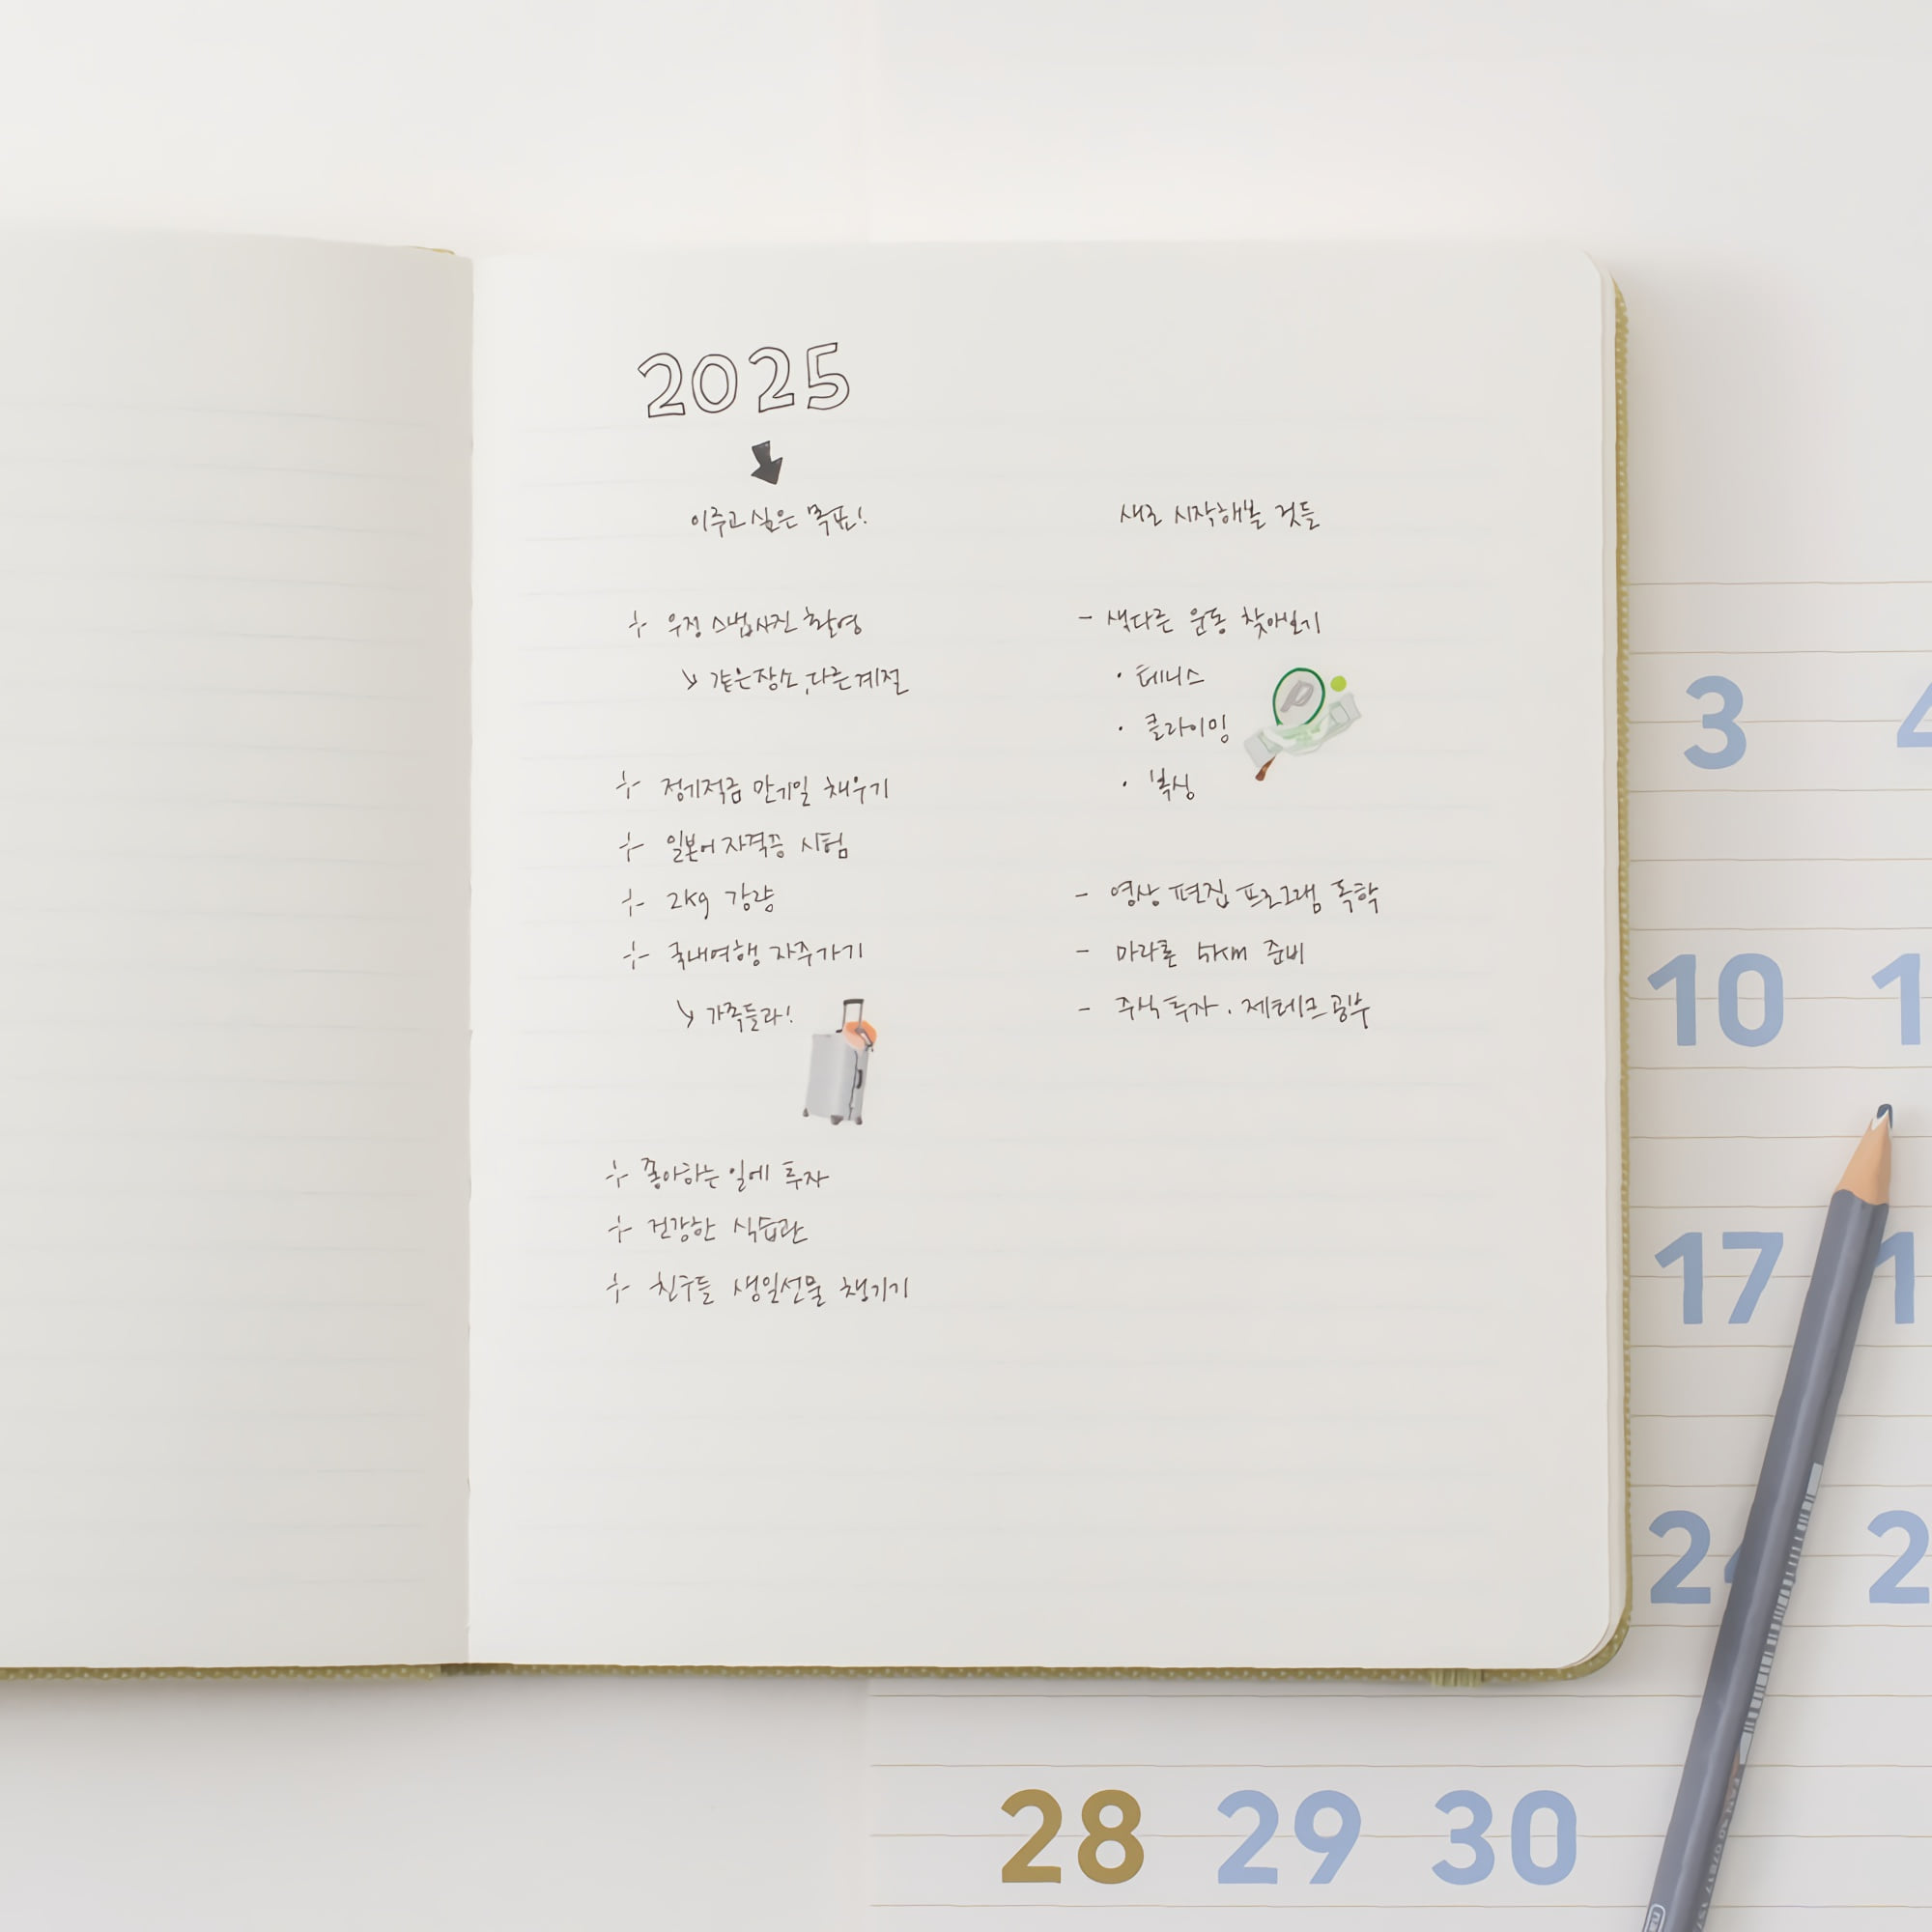 2025
이루고 싶은 목표!
÷ 우정 스냅사진 촬영
↘ 같은장소, 다른계절
÷ 정기적금 만기일 채우기
÷ 일본어 자격증 시험
÷ 2kg 감량
÷ 국내여행 자주가기
↘ 가족들과!
÷ 좋아하는 일에 투자
÷ 건강한 식습관
÷ 친구들 생일선물 챙기기
새로 시작해볼 것들
- 색다른 운동 찾아보기
· 테니스
· 클라이밍
· 복싱
- 영상 편집 프로그램 독학
- 마라톤 5km 준비
- 주식투자 · 재테크 공부
P
3 4
10 1
17 1
24 2
28 29 30